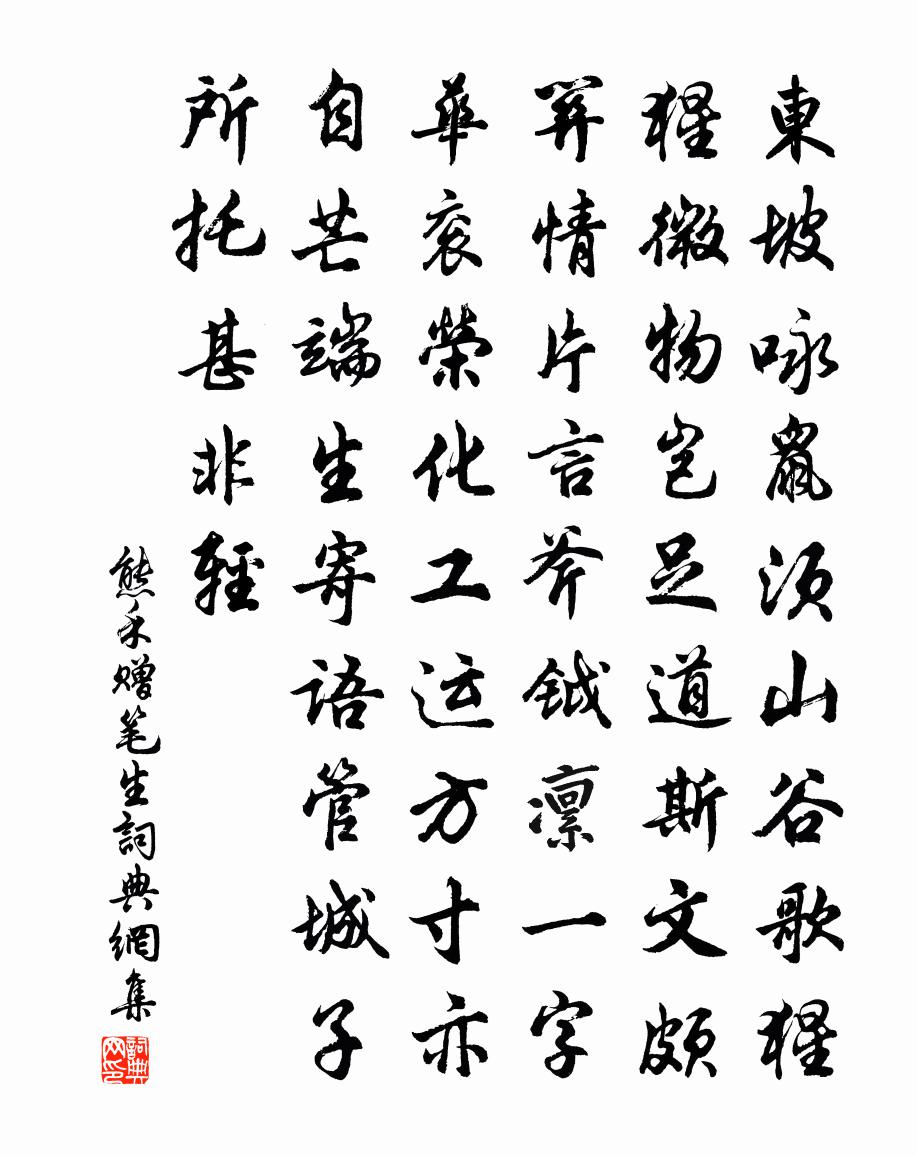 東坡咏鼠须山谷歌猩
猩微物岂足道斯文頗
關情片言斧鉞凛一字
華衮榮化工运方寸亦
自芒端生寄語管城子
所托甚非輕
熊禾赠笔生詞典網集
詞典网印